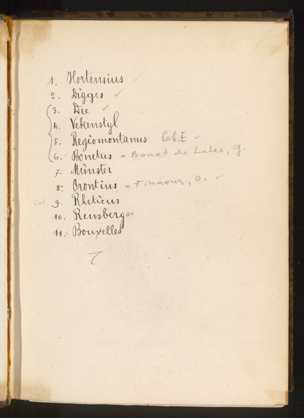 1. Hortensius ✓
2. Digges ✓
3. Dee ✓
4. Vekenstyl
5. Regiomontanus Col. E ✓
6. Bonetus = Bonet de Lates, G.
7. Münster
8. Orontius = Finaeus, O. ✓
9. Rheticus
10. Rensberger
11. Bouxelles